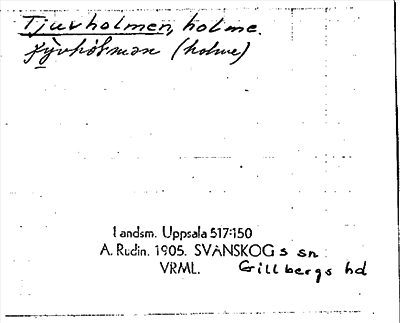 Tjuvholmen, holme.
(holme)
Landsm. Uppsala 517:150
A. Rudin. 1905. SVANSKOGS sn
VRML. Gillbergs hd